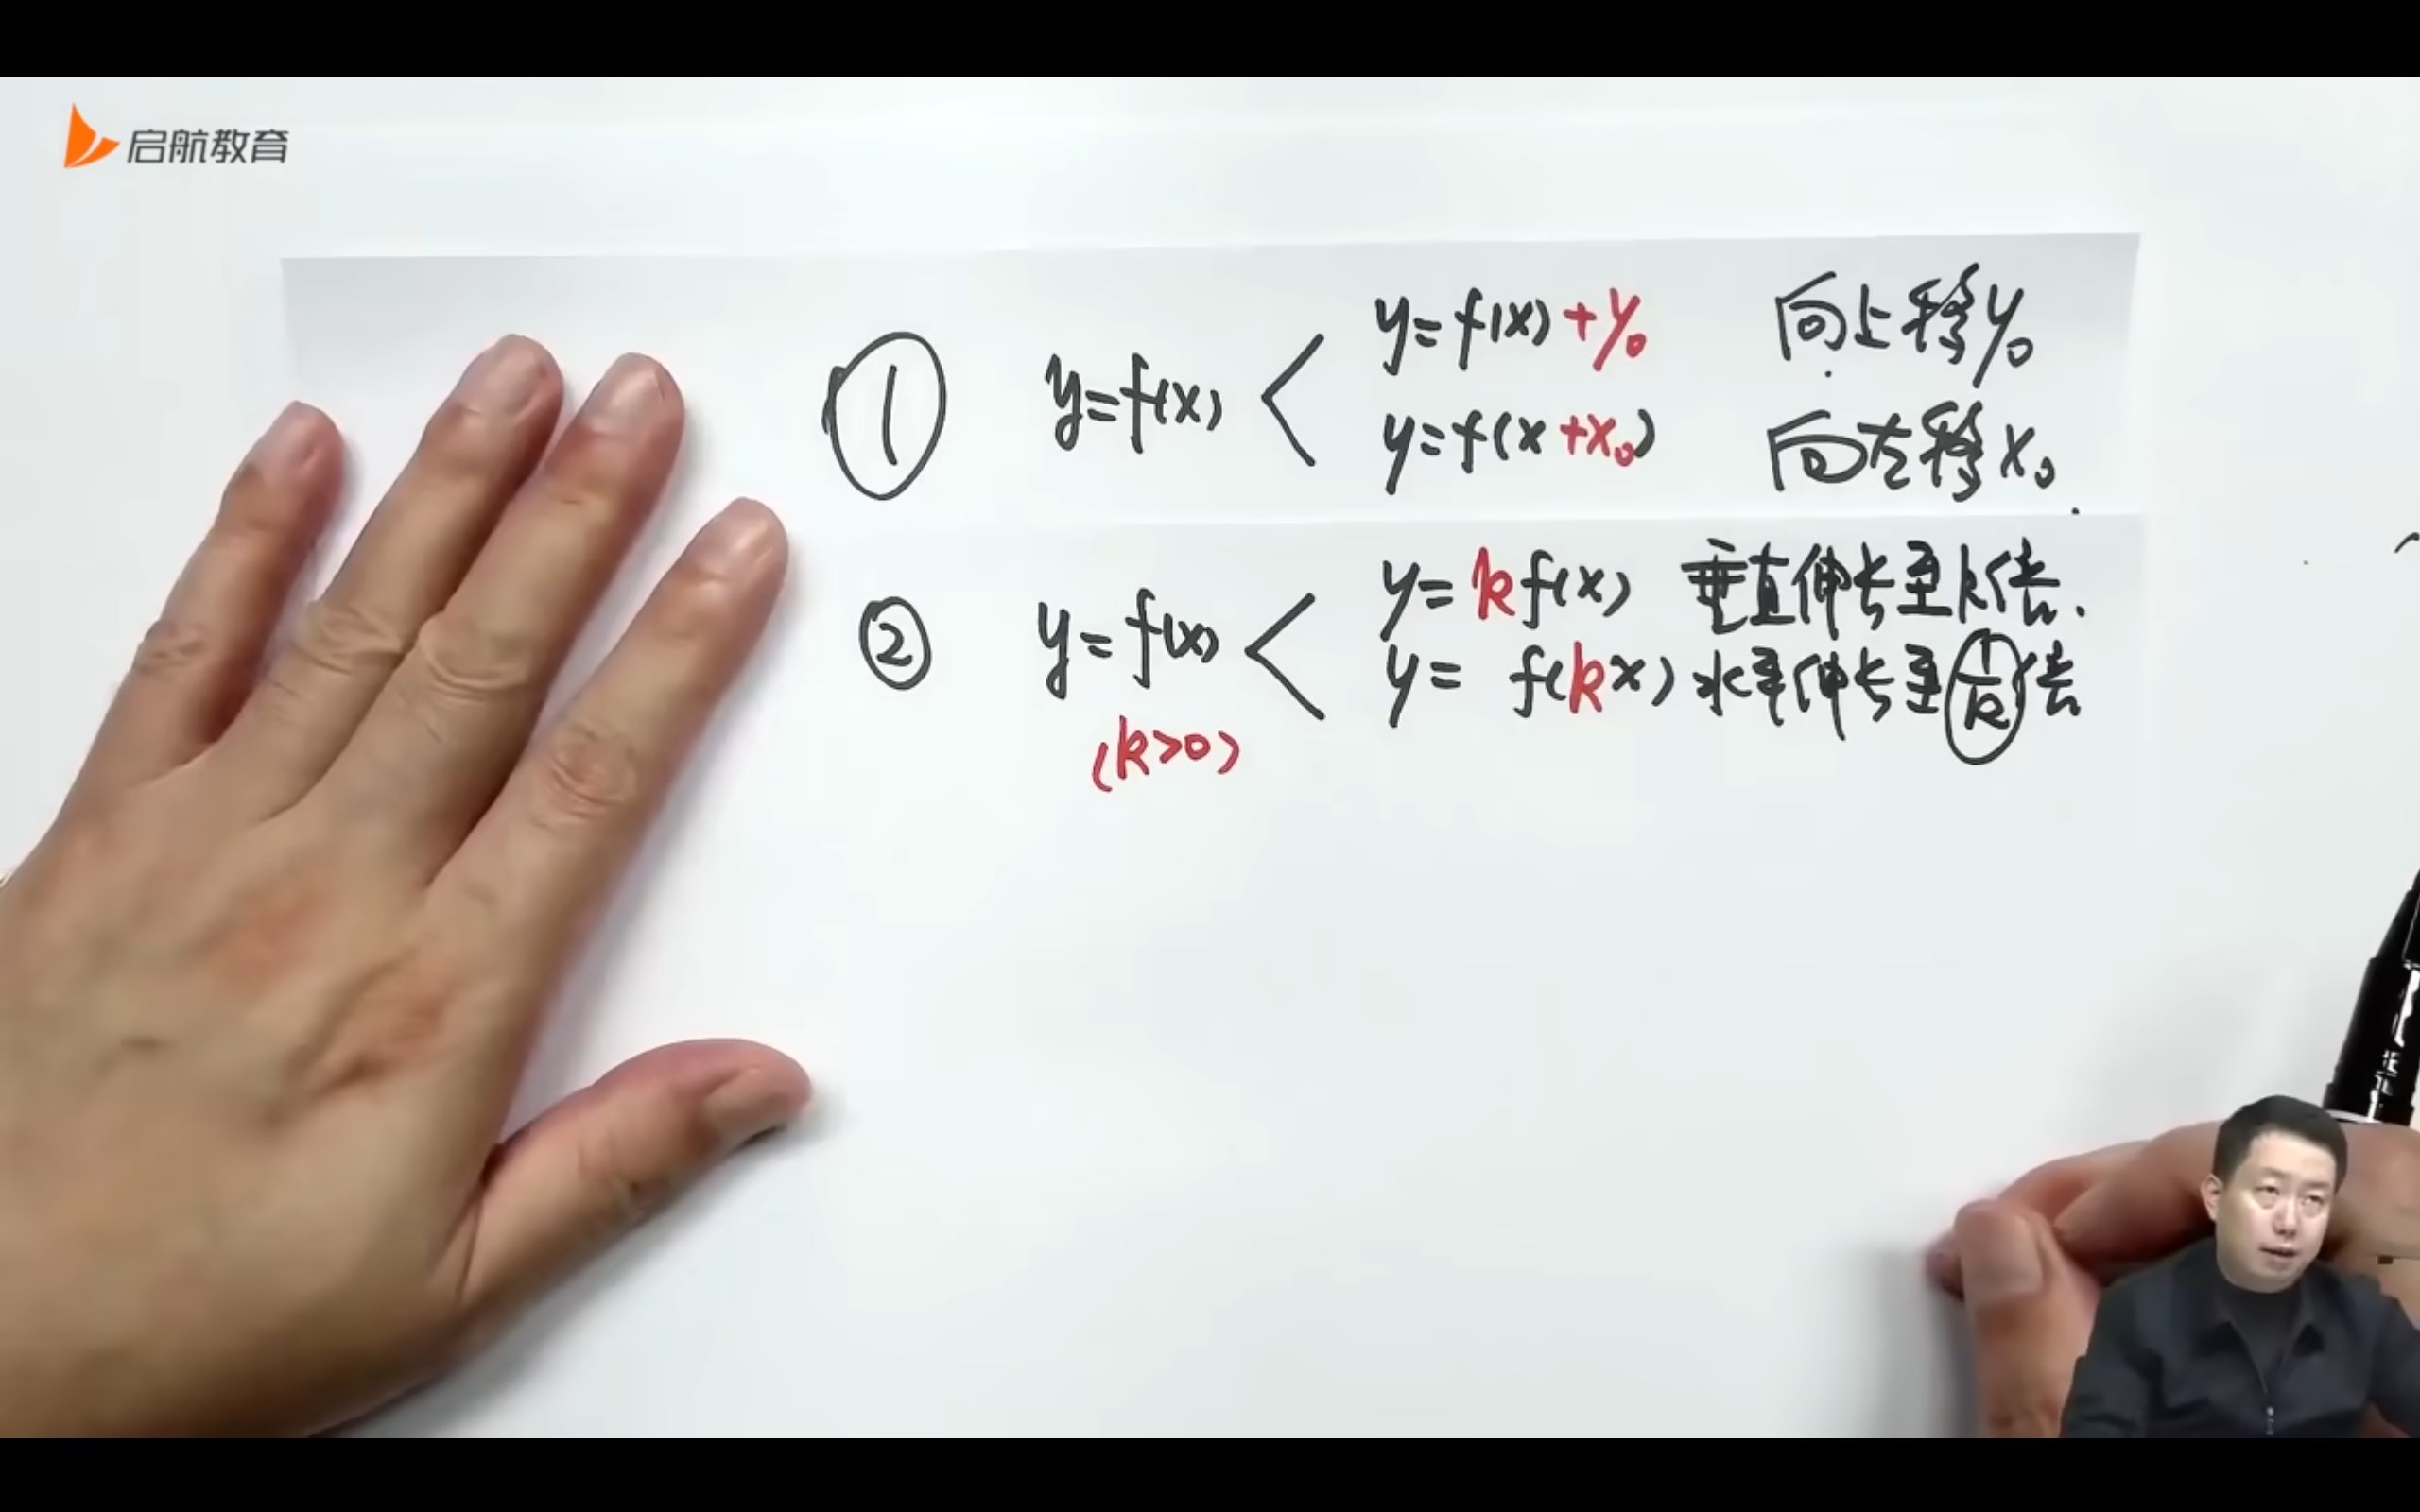 启航教育
① y=f(x) < y=f(x)+y₀ 向上移y₀
y=f(x+x₀) 向左移x₀
② y=f(x) < y=kf(x) 垂直伸长至k倍.
(k>0) y= f(kx) 水平伸长至1/k倍